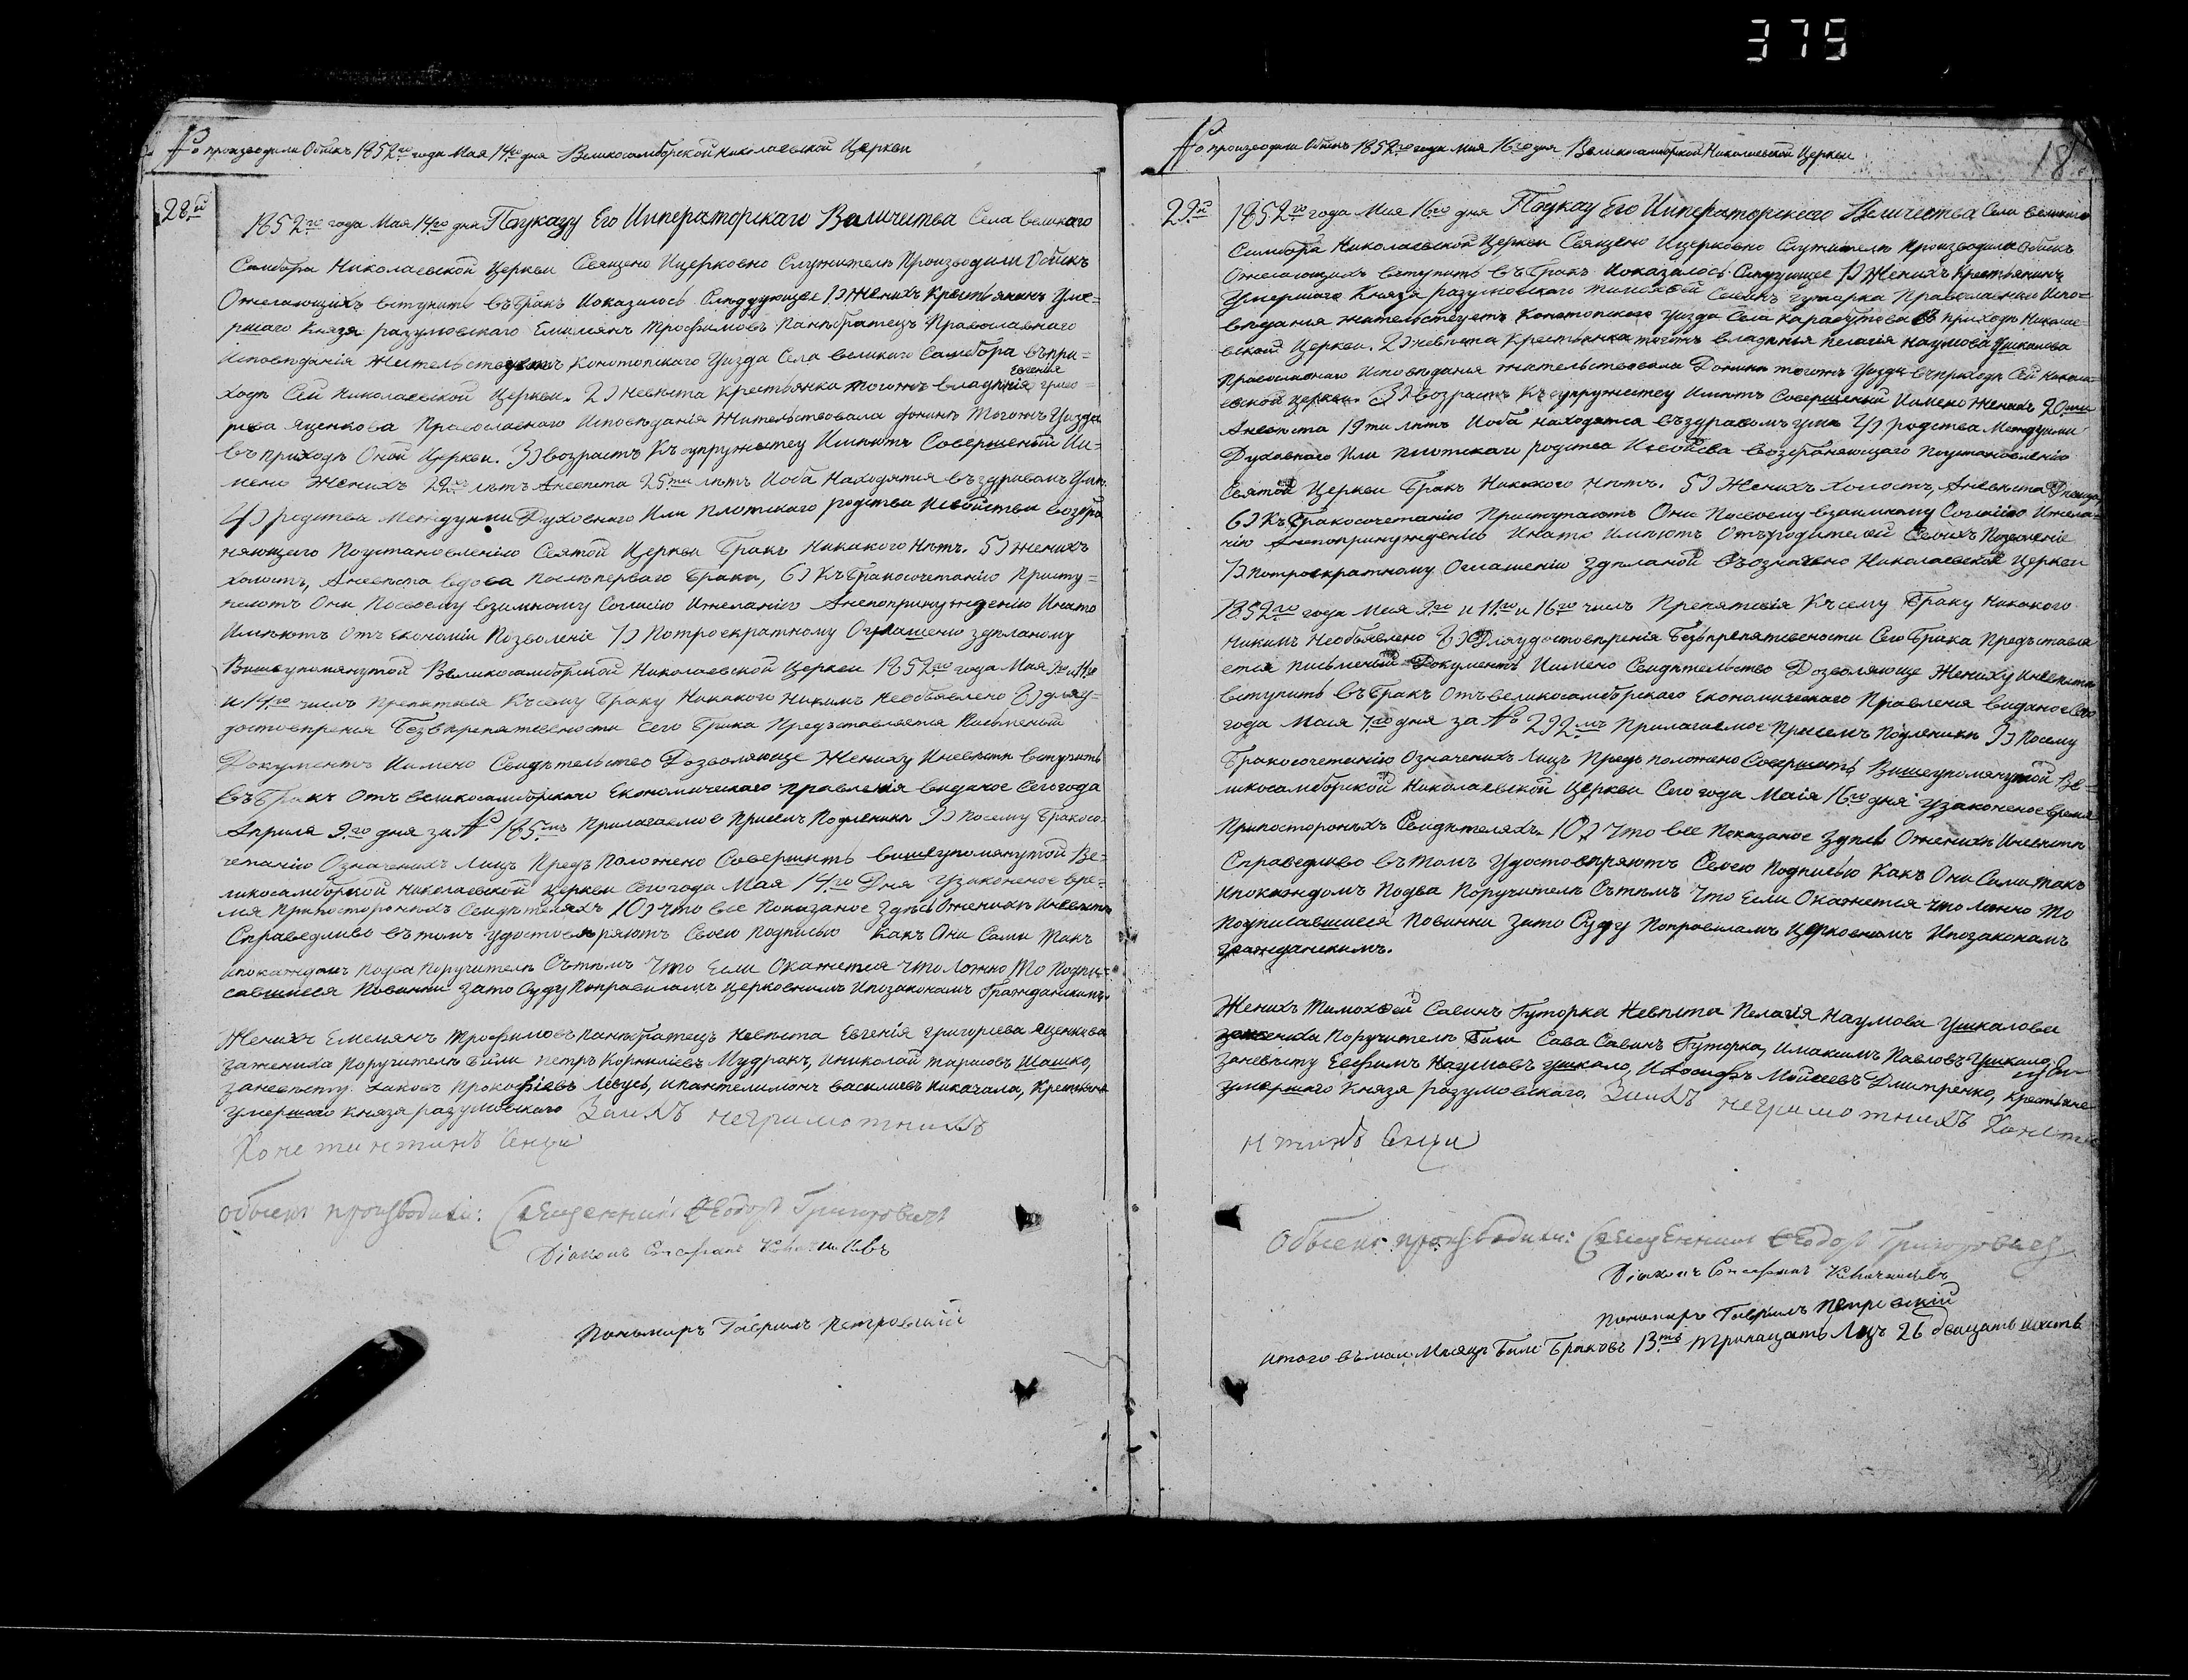 375
№ производили Обыскъ 1852го года Мая 14го дня Великосамборской Николаевской Церкви
28й
1852го года Мая 14го дня Поуказу Его Императорскаго Величества Села великаго
Самбора Николаевской Церкви Священо Ицерковно Служители Производили Обыскъ
Ожелающихъ вступить въ Бракъ Иоказалось Следующее 1) Женихъ Крестьянинъ Уме-
ршаго Князя разумовскаго Емилянъ Трофимовъ Панибратецъ Православнаго
Исповѣданія Жительствуетъ Конотопскаго Уизда Села великаго Самбора въ при-
ходѣ Сей Николаевской Церкви. 2) Невѣста Крестьянка тогожъ владѣнія Евгенія Григо-
рева Яценкова Православнаго Исповѣданія Жительствовала донинѣ Тогожъ Уизда
въ приходѣ Оной Церкви. 3) возрастъ Къ супружеству Имѣютъ Совершеный Им-
мено Женихъ 22хъ лѣтъ Аневѣста 25ти лѣтъ Иоба Находятся въ здравомъ Умѣ
4) родства Междуими Духовнаго Или плотскаго родства Исвойства возбра
няющаго Поустановленію Святой Церкви Бракъ Никакого Нѣтъ. 5) Женихъ
холостъ, Аневѣста вдова послѣ перваго Брака, 6) Къ Бракосочетанію Присту-
паютъ Они Посвоему взаимному Согласію Ижеланію Анепопринужденію Инато
Имѣютъ Отъ Економіи Позволеніе 7) Потроекратному Оглашенію здѣланому
Вишеупомянутой Великосамборской Николаевской Церкви 1852го года Мая 9го, 11го
и 14го числъ Препятствія Къ сему Браку Никакого Никимъ Необъявлено 8) дляу-
достовѣренія Безъ препятствености сего Брака Предъставляется Письменый
Документъ Имено Свидѣтельство Дозволяюще Жениху Иневѣсти вступить
въ Бракъ Отъ великосамборскаго Економическаго Правленія виданое Сего года
Априля 9го дня за № 185мъ Прилагаемое Присемъ Подлѣникѣ 9) Посему Бракосо-
четанію Означенихъ Лицъ Предъ Положено Совершить вишеупомянутой Ве-
ликосамборской Николаевской Церкви Сего года Мая 14го Дня Узаконеное вре-
мя Припосторонихъ Свидѣтеляхъ 10) Что все Показаное Здѣсь Оженихѣ Иневѣстѣ
Справедливо въ томъ удостовѣряютъ Своею Подписью Какъ Они Сами Такъ
ипокаждомъ Подва Поручителѣ Сътѣмъ Что Если Окажется Что Ложно То Подпи-
савшиеся Повинни Зато Суду Поправиламъ Церковнимъ Ипозаконамъ Гражданскимъ.
Женихъ Емелянъ Трофимовъ Панибратецъ Невѣста Евгенія Григорьева Яценкова
Зажениха Поручители Били Петръ Корниліевъ Мудракъ, Иниколай Тарасовъ Шашко,
Заневѣсту Іаковъ Прокофіевъ Левусь, Ипантелимонъ Василиевъ Никачала, Крестьяне
Умершаго Князя разумовского За ихъ неграмотнихъ
Константинъ Сенци
Обыскъ производили: Священникъ Ѳеодоръ Григоровичъ
Діаконъ Стефанъ
Пономаръ Гаврилъ Петровскій
№ производили Обыскъ 1852го года Мая 16го дня Великосамборской Николаевской Церкви
18
29й
1852го года Мая 16го дня Поуказу Его Императорскаго Величества Села великаго
Самбора Николаевской Церкви Священо Ицерковно Служители Производили Обыскъ
Ожелающихъ вступить въ Бракъ Иоказалось Следующее 1) Женихъ Крестьянинъ
Умершаго Князя разумовскаго Тимоѳей Савинъ Гуторка Православнаго Испо-
вѣданія Жительствуетъ Конотопскаго Уизда Села Карабутова въ приходѣ Николае-
вской Церкви. 2) Невѣста Крестьянка тогожъ владѣнья Пелагія Наумова Ушкалова
Православнаго Исповѣданія Жительствовала Донинѣ тогожъ Уизда въ приходѣ Сей Никола-
евской Церкви. 3) возрастъ Къ супружеству Имѣютъ Совершеный Иимено Женихъ 20ти
Аневѣста 19ти лѣтъ Иоба Находятся въ здравомъ умѣ 4) родства Междуими
Духовнаго Или плотскаго родства Исвойства возбраняющаго Поустановленію
Святой Церкви Бракъ Никакого Нѣтъ. 5) Женихъ Холостъ, Аневѣста Дѣвица
6) Къ Бракосочетанію Приступаютъ Они Посвоему взаимному Согласію Ижела-
нію Анепопринужденію Инато Имѣютъ Отъ родителей Своихъ Позволеніе
7) Потроекратному Оглашенію Здѣланой въ означено Николаевской Церкви
1852го года Мая 9го и 11го и 16го числъ Препятствія Къ сему Браку Никакого
Никимъ Необъявлено 8) Дляудостовѣренія Безъ препятствености Сего Брака Предъставля
ется письменый Документъ Иимено Свидѣтельство Дозволяюще Жениху Иневѣсти
вступить въ Бракъ Отъ великосамборскаго Економическаго Правленія виданое Сего
года Мая 7го дня за № 292мъ Прилагаемое Присемъ Подлѣникѣ 9) Посему
Бракосочетанію Означенихъ Лицъ Предъ положено Совершить Вишеупомянутой Ве-
ликосамборской Николаевской Церкви Сего года Маія 16го дня Узаконеное время
Припостороныхъ Свидѣтеляхъ. 10) Что все Показаное Здѣсь Оженихѣ Иневѣстѣ
Справедливо въ томъ Удостовѣряютъ Своею Подписью Какъ Они Сами Такъ
Ипокаждомъ Подва Поручителѣ Сътѣмъ Что Если Окажется что ложно То
Подписавшиеся Повинни Зато Суду Поправиламъ Церковнымъ Ипозаконамъ
Гражданскимъ.
Женихъ Тимоѳей Савинъ Гуторка Невѣста Пелагія Наумова Ушкалова
Зажениха Поручители Били Сава Савинъ Гуторка, Имаксимъ Павловъ Ушкало,
Заневѣсту Евфимъ Наумовъ Ушкало, Иіосифъ Мойсеевъ Дмитренко, Крестьяне
Умершаго Князя разумовскаго. За ихъ неграмотнихъ Конста
нтинъ Сенци
Обыскъ производили: Священникъ Ѳеодоръ Григоровичъ
Діаконъ Стефанъ
Пономаръ Гаврилъ Петровскій
Итого въ маи Месяцѣ Било Браковъ 13ть Тринацать Лицъ 26 двацать шесть